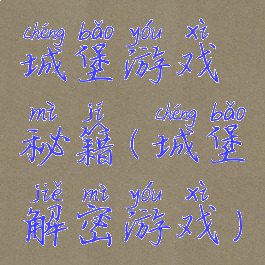 chéng bǎo yóu xì
城堡游戏
mì jí ( chéng bǎo
秘籍(城堡
jiě mì yóu xì )
解密游戏)